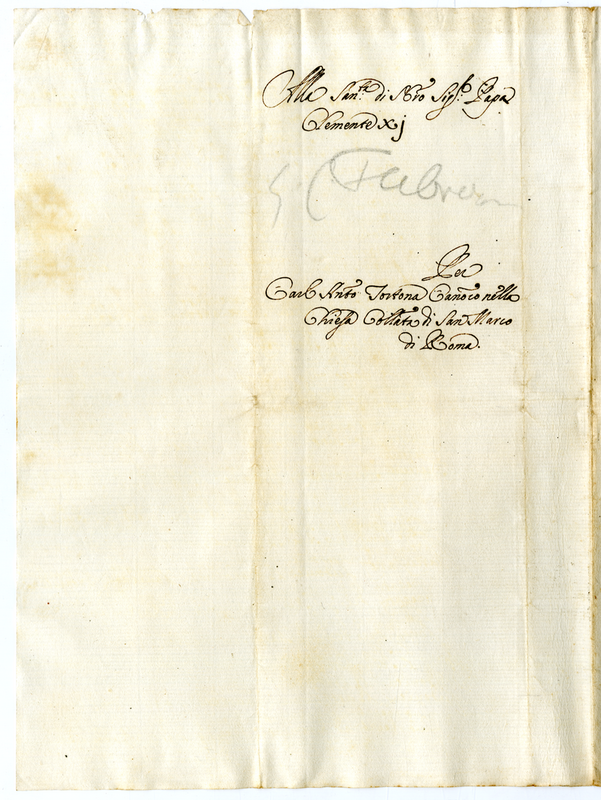 Alla San.tà di Nrõ Sig.re Papa
Clemente xj
Per
Carl' Antõ Tortona Canõco nella
Chiesa Collatã di San Marco
di Roma.